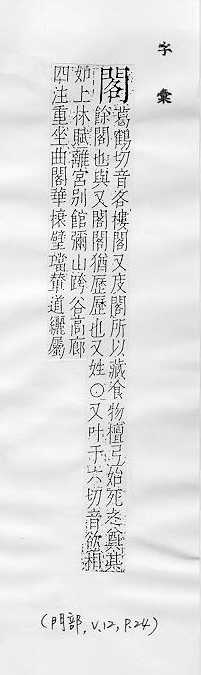 字彙
閣葛鶴切音各樓閣又庋閣所以藏食物檀弓始死之奠其
餘閣也與又閣閣猶歷歷也又姓〇又叶于六切音欲相
如上林賦離宮別館彌山跨谷高廊
四注重坐曲閣華榱璧璫輦道纚屬
(門部, V.12, P.24)